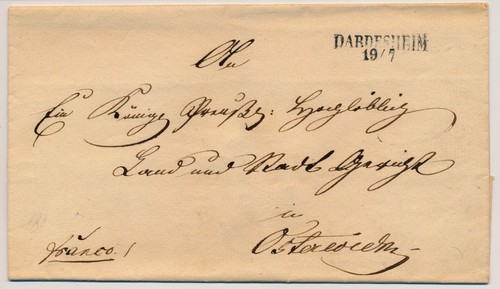 DARDESHEIM
19/7
An
Ein Königl. Preuß: Hochlöblig
Land und Stadt Gericht
in
Osterwieck
franco.